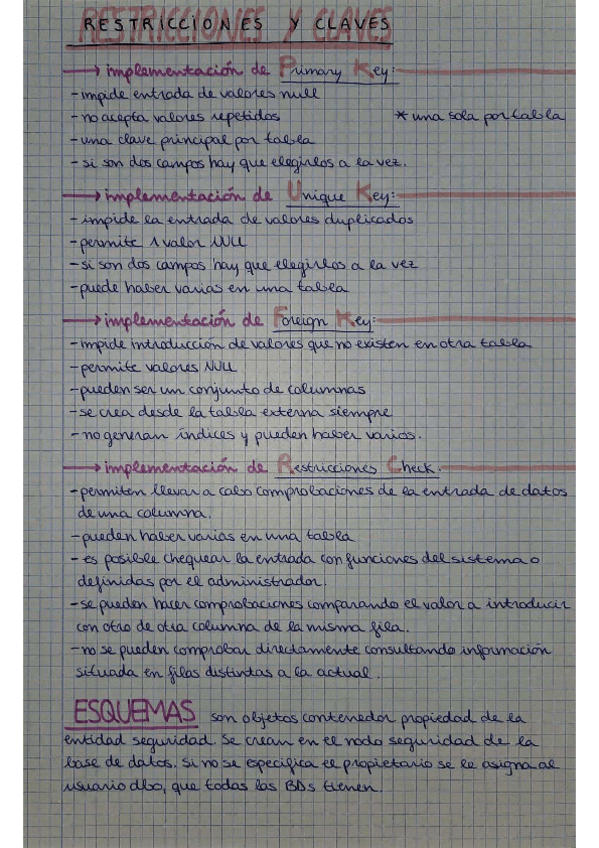 RESTRICCIONES Y CLAVES
→ implementación de Primary Key:
- impide entrada de valores null
- no acepta valores repetidos * una sola por tabla
- una clave principal por tabla
- si son dos campos hay que elegirlos a la vez.
→ implementación de Unique Key:
- impide la entrada de valores duplicados
- permite 1 valor NULL
- si son dos campos hay que elegirlos a la vez
- puede haber varias en una tabla
→ implementación de Foreign Key:
- impide introducción de valores que no existen en otra tabla
- permite valores NULL
- pueden ser un conjunto de columnas
- se crea desde la tabla externa siempre
- no generan índices y pueden haber varios.
→ implementación de Restricciones Check.
- permiten llevar a cabo comprobaciones de la entrada de datos
de una columna.
- pueden haber varias en una tabla
- es posible chequear la entrada con funciones del sistema o
definidas por el administrador.
- se pueden hacer comprobaciones comparando el valor a introducir
con otro de otra columna de la misma fila.
- no se pueden comprobar directamente consultando información
situada en filas distintas a la actual.
ESQUEMAS son objetos contenedor propiedad de la
entidad seguridad. Se crean en el nodo seguridad de la
base de datos. Si no se especifica el propietario se le asigna al
usuario dbo, que todas las BDs tienen.